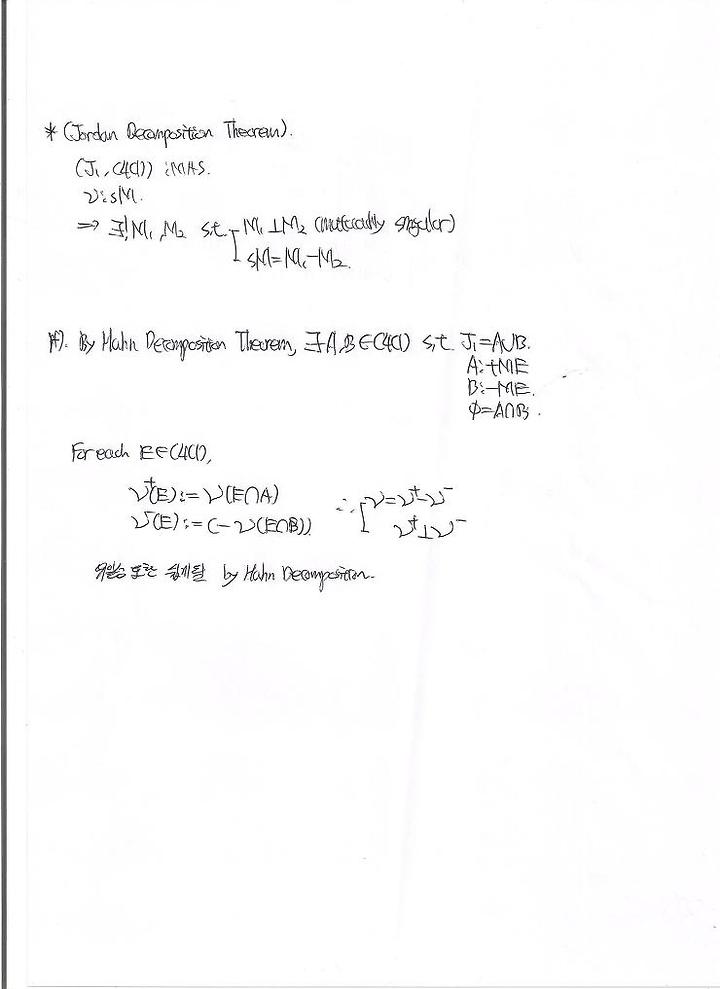 * (Jordan Decomposition Theorem).
(J₁, C4C1) : MAS.
ν : sM.
⇒ ∃! M₁, M₂ s.t. M₁⊥M₂ (mutually singular)
sM=M₁-M₂.
pf). By Hahn Decomposition Theorem, ∃A,B∈C4C1) s,t. J₁=A∪B.
A:+ME
B:-ME.
∅=A∩B.
For each E∈C4C1),
ν⁺(E):=ν(E∩A) ∴ ν=ν⁺-ν⁻
ν⁻(E):=(-ν(E∩B)) ν⁺⊥ν⁻
또한 쉽게 by Hahn Decomposition.